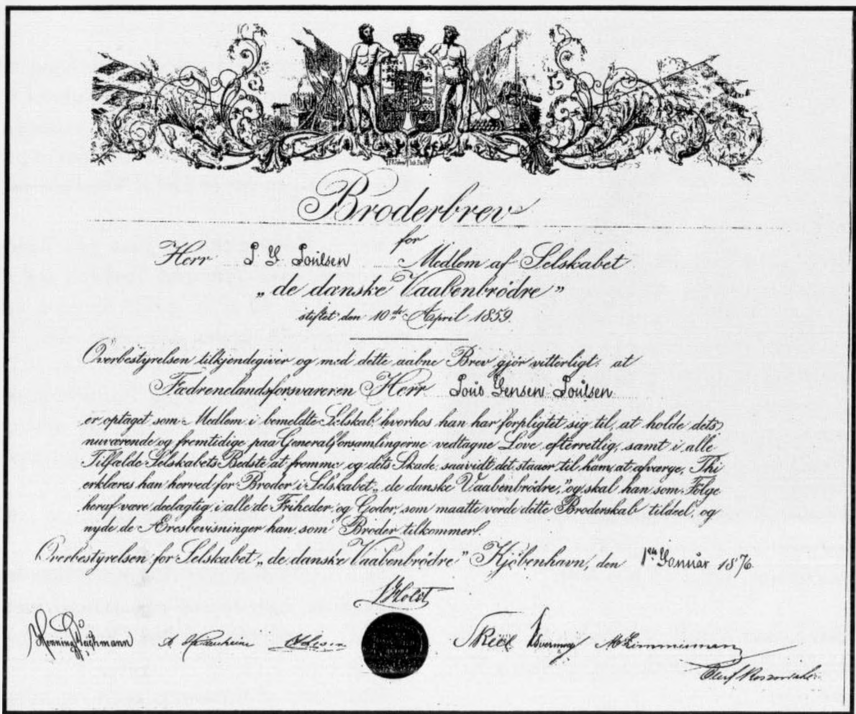 Broderbrev
for
Herr L J Poulsen Medlem af Selskabet
„de danske Vaabenbrödre”
stiftet den 10de April 1859.
Overbestyrelsen tilkjendegiver og med dette aabne Brev gjör vitterligt: at
Fædrenelandsforsvareren Herr Jensen Poulsen
er optaget som Medlem i bemeldte Selskab, hvorhos han har forpligtet sig til, at holde dets
nuværende og fremtidige paa Generalforsamlingerne vedtagne Love efterretlig, samt i alle
Tilfælde Selskabets Bedste at fremme og dets Skade, saavidt det staaer til ham, at afværge, Thi
erklæres han herved for Broder i Selskabet „de danske Vaabenbrödre,” og skal han som Fölge
heraf være deelagtig i alle de Friheder og Goder, som maatte vorde dette Broderskab tildeel, og
nyde de Æresbevisninger han som Broder tilkommer.
Overbestyrelsen for Selskabet „de danske Vaabenbrödre” Kjöbenhavn, den 1ste Januar 1876
Holst
Henning